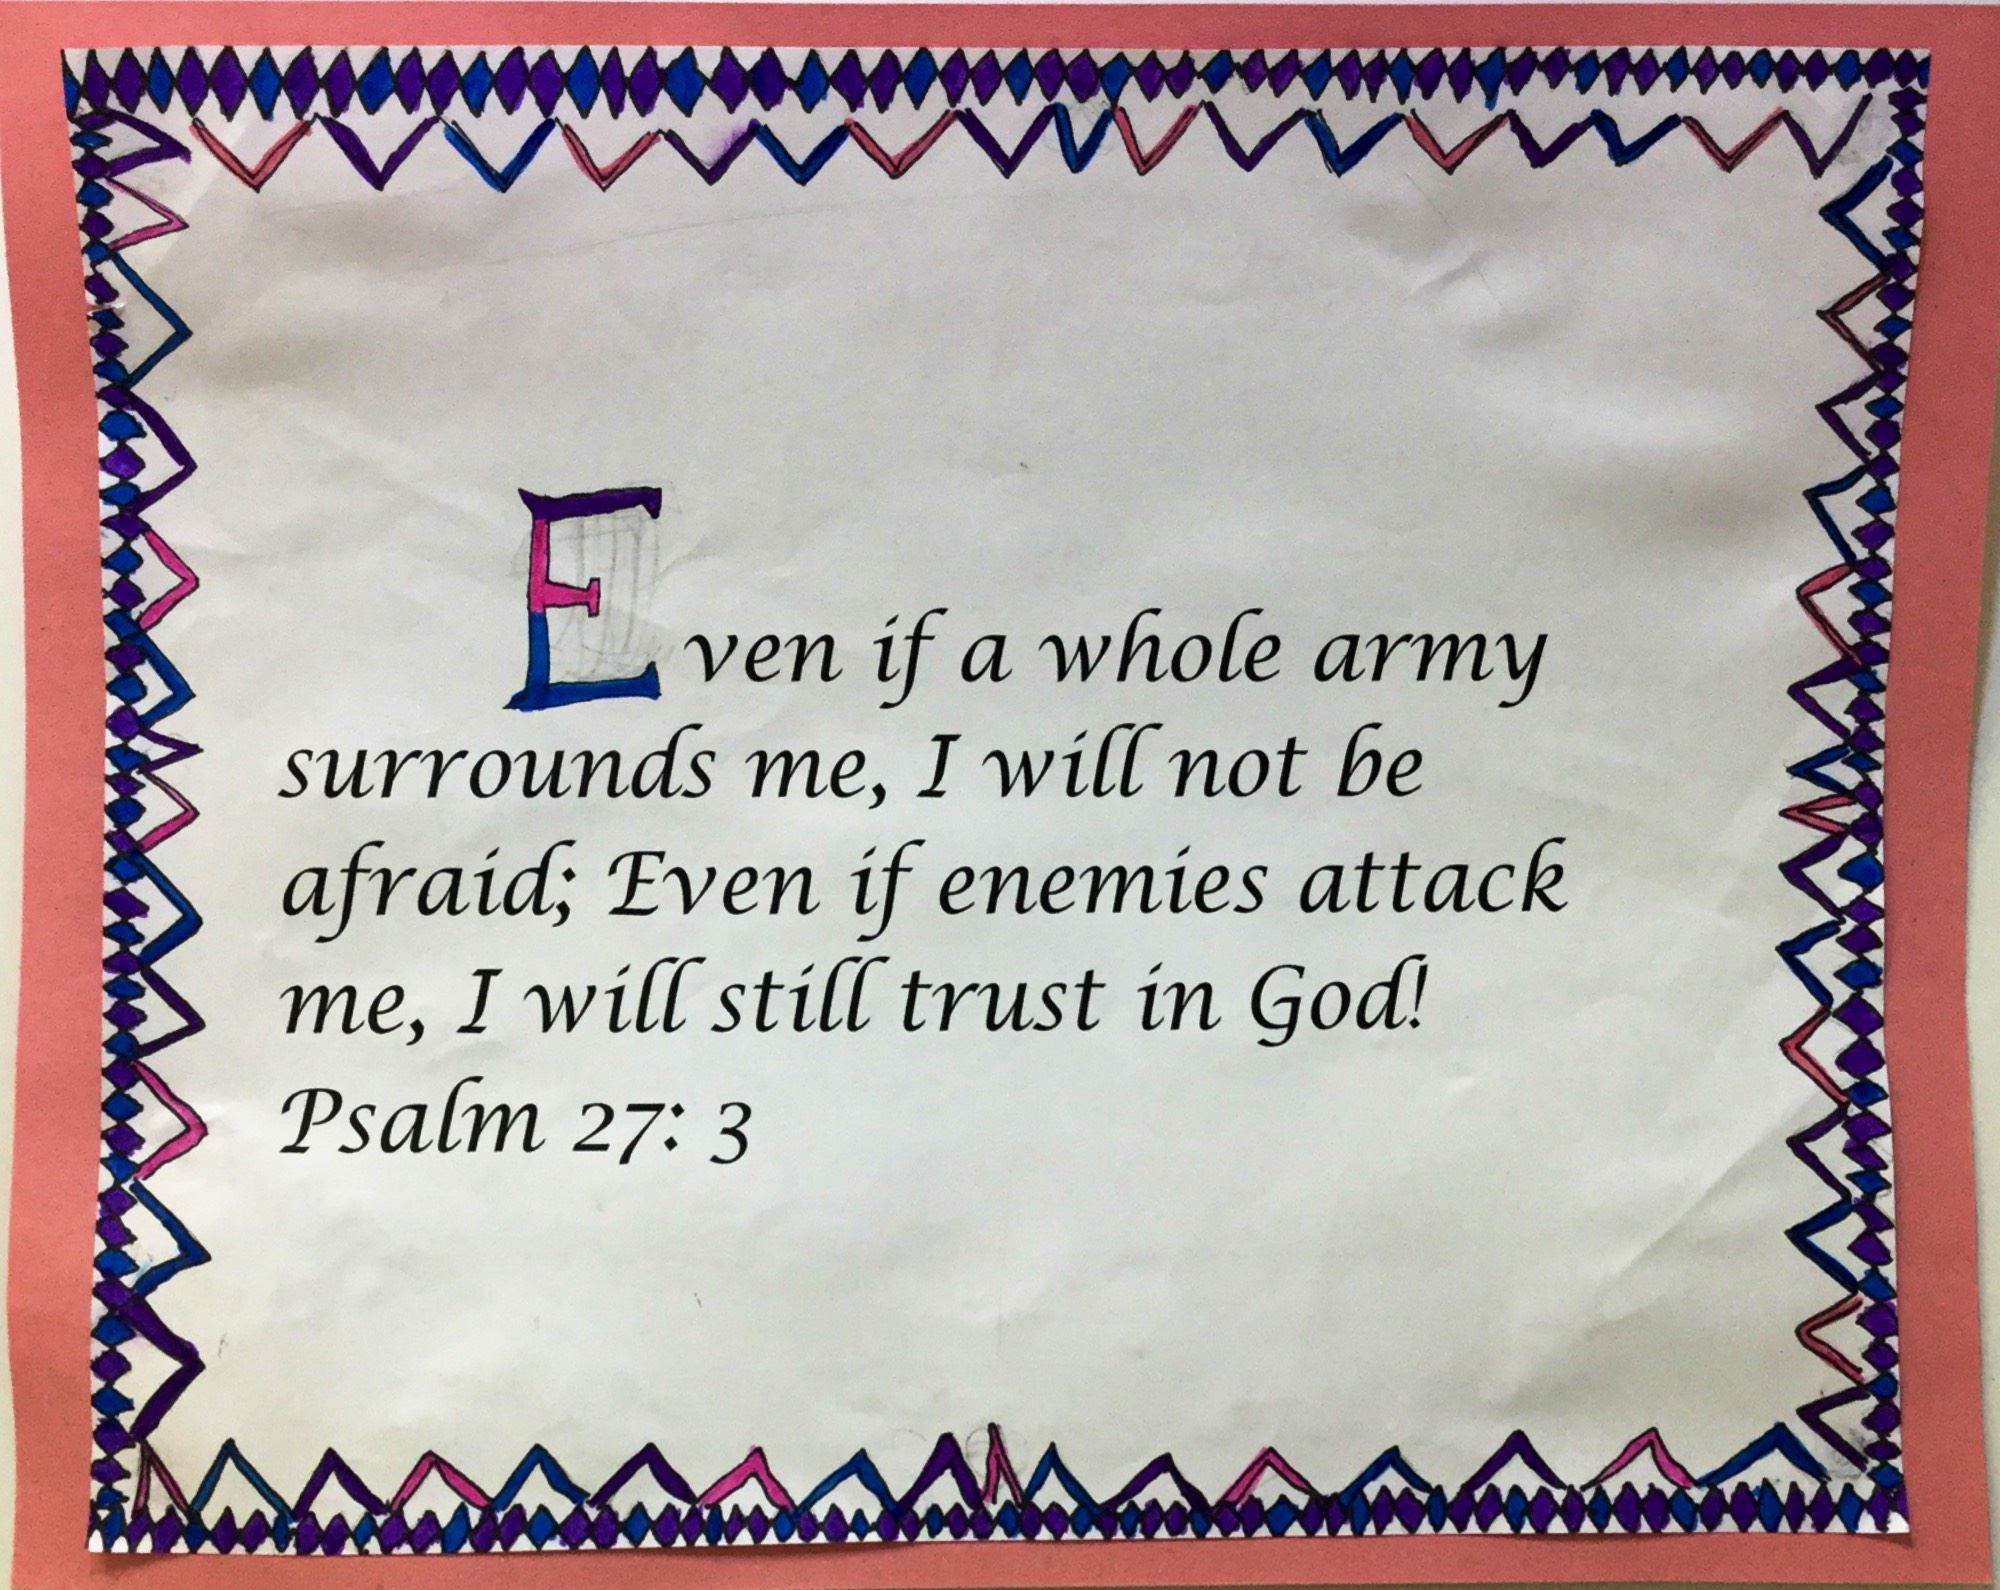 Even if a whole army
surrounds me, I will not be
afraid; Even if enemies attack
me, I will still trust in God!
Psalm 27: 3